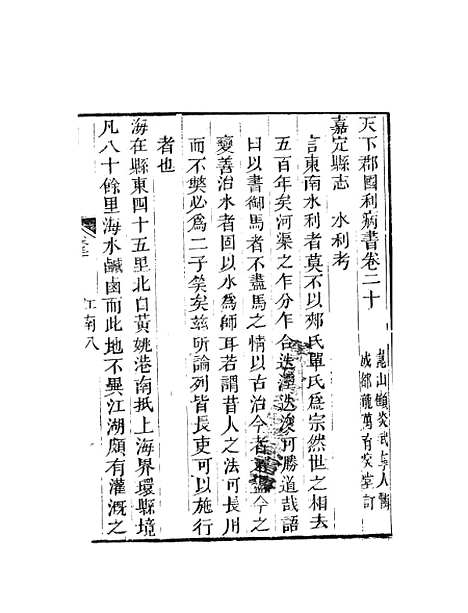 天下郡國利病書卷二十
崑山顧炎武亭人輯
成都龍萬育燮堂訂
嘉定縣志 水利考
言東南水利者莫不以郟氏單氏爲宗然世之相去
五百年矣河渠之乍分乍合迭湮迭浚可勝道哉語
曰以書御馬者不盡馬之情以古治今者不盡今之
變善治水者固以水爲師耳若謂昔人之法可長用
而不獘必爲二子笑矣茲所論列皆長吏可以施行
者也
海在縣東四十五里北自黃姚港南抵上海界環縣境
凡八十餘里海水鹹鹵而此地不異江湖頗有灌漑之
江南八